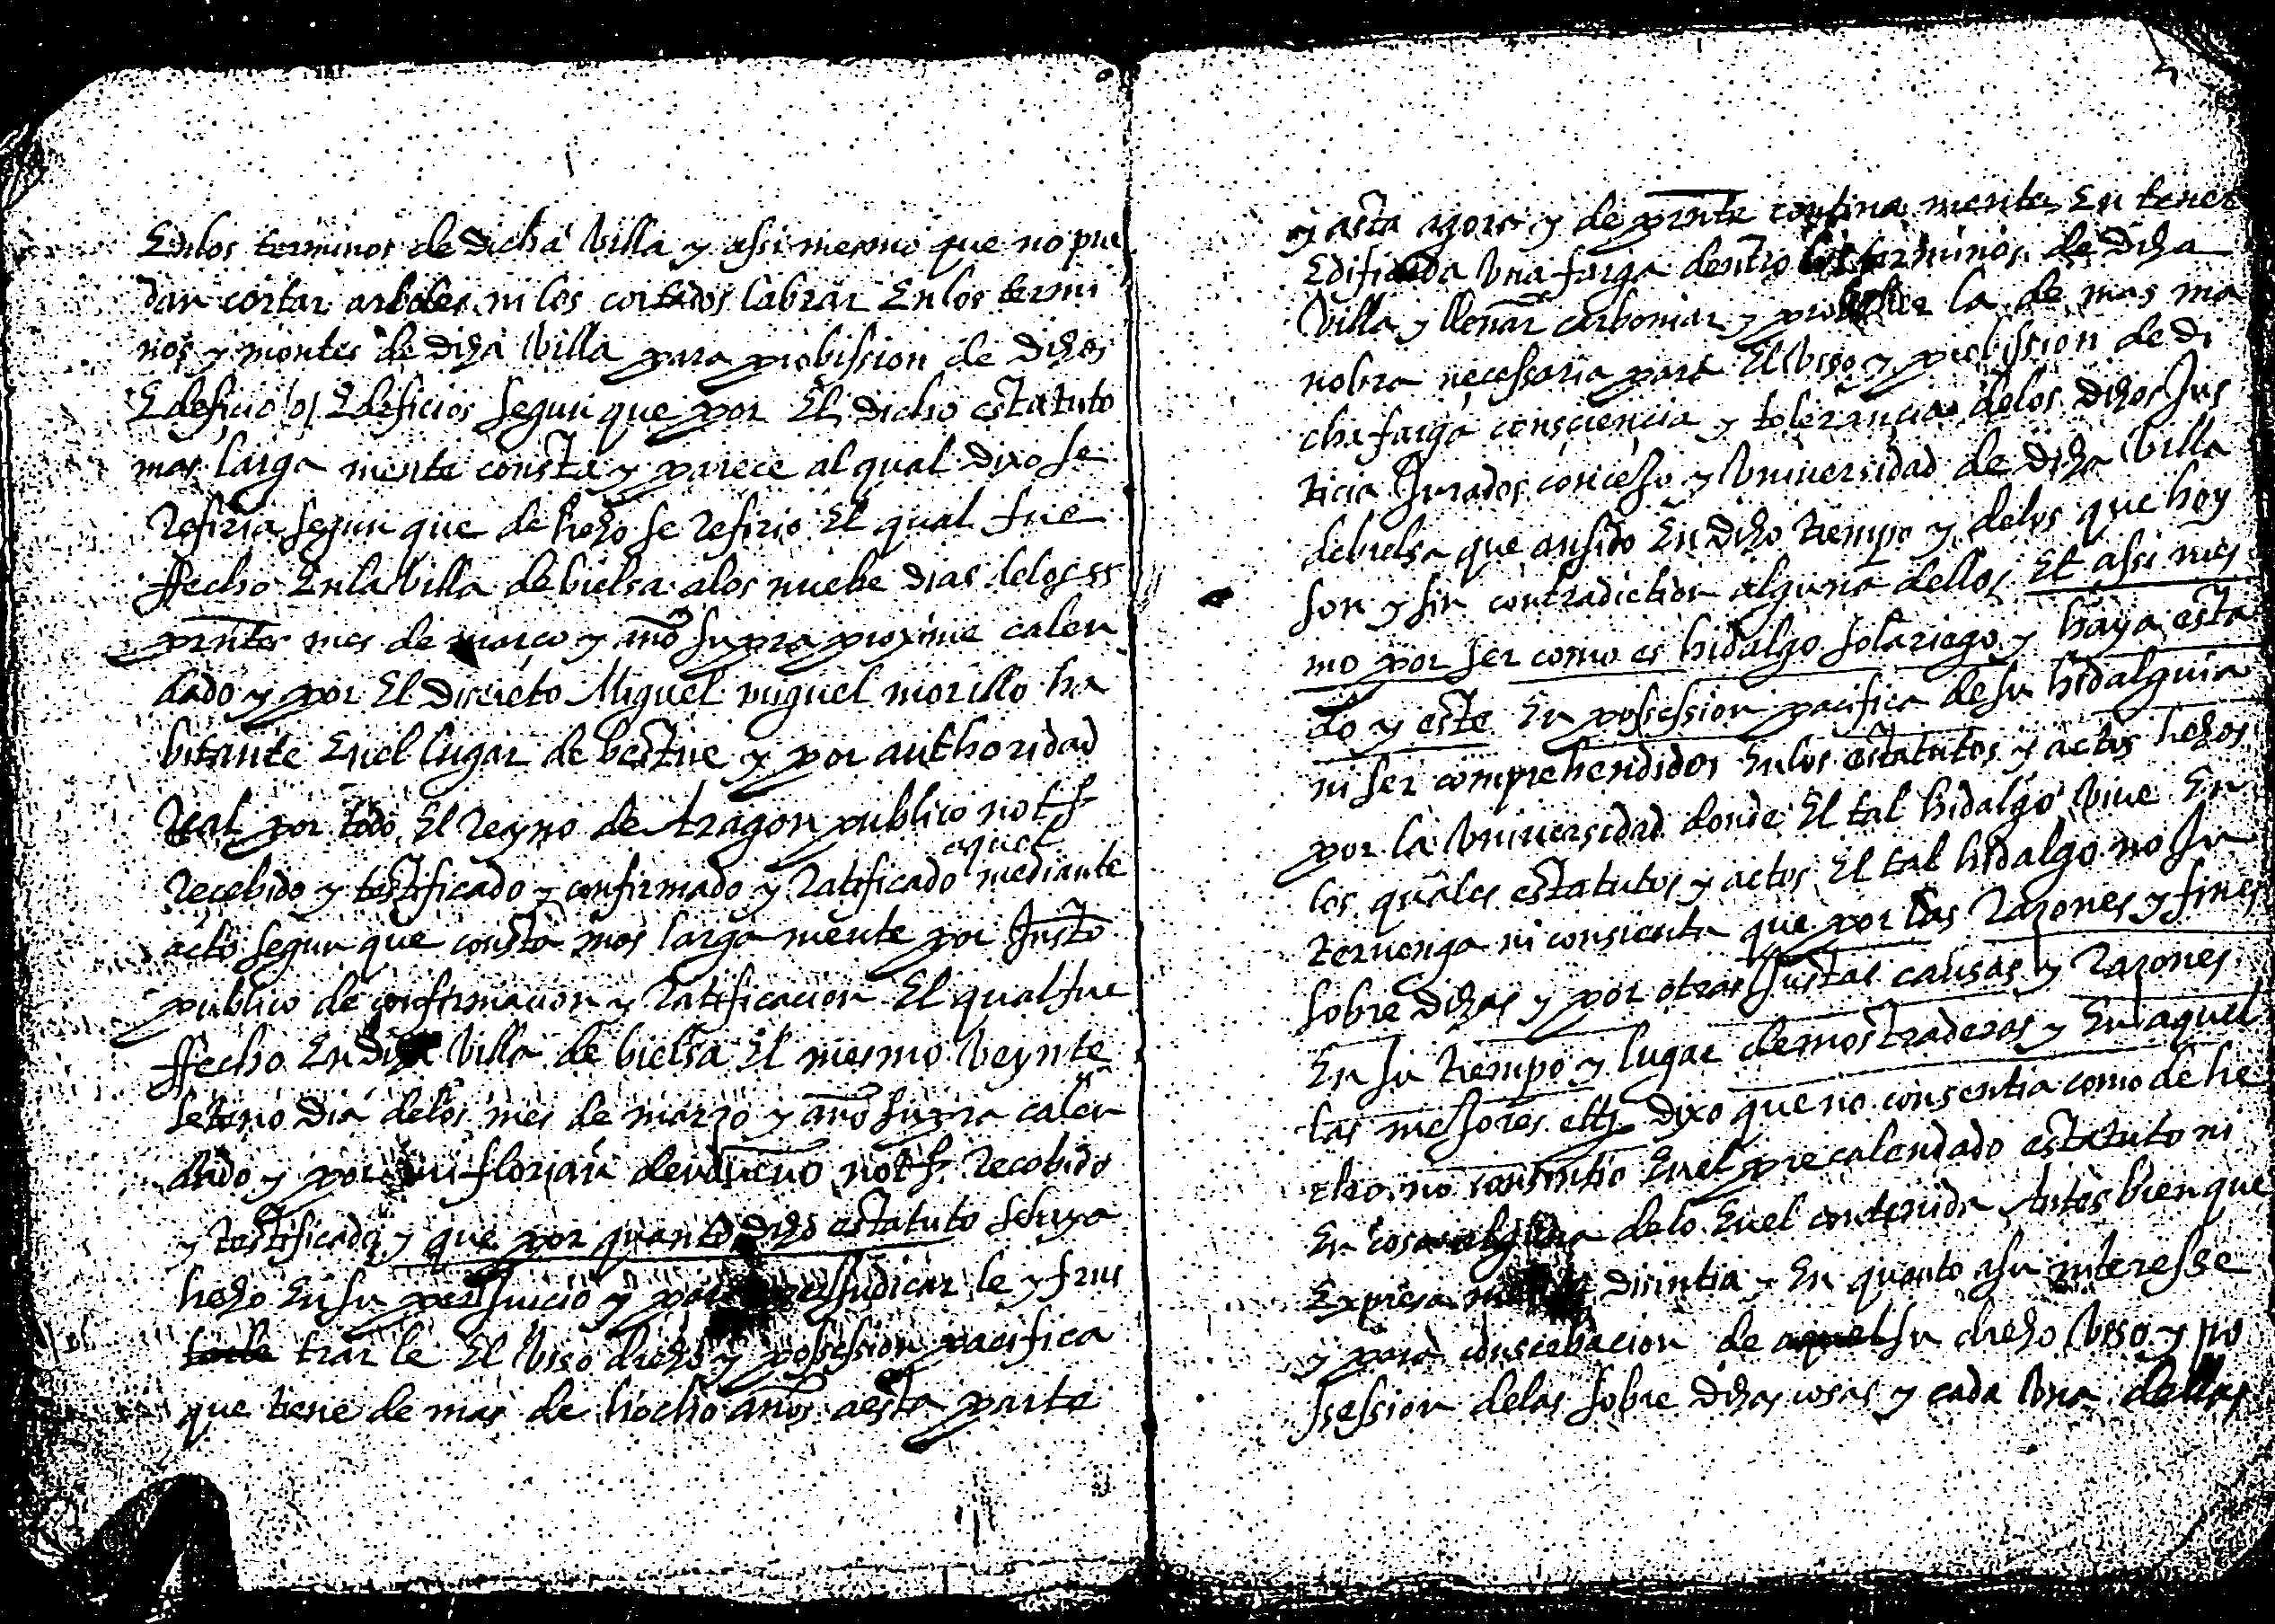 Enlos terminos de dicha Villa y assi mesmo que no pue
dan cortar arboles ni los cortados labrar Enlos termi
nos y montes de dicha Villa para probission de dichos
Edeficio o Edeficios segun que por El dicho estatuto
mas larga mente consta y parece al qual dixo se
Refiria segun que de hecho se refirio El qual fue
ffecho Enla Villa de bielsa a los nuebe dias delos
pnntes mes de março y año supra proxime calen
dado y por El discreto Miguel miguel morillo ha
bitante Enel lugar de bestue y por authoridad
Real por todo El Reyno de Aragon publico nott
aquel
Recebido y testificado y confirmado y Ratificado mediante
acto segun que consta mas larga mente por Insto
publico de confirmacion y Ratificacion El qual fue
ffecho En dicha Villa de bielsa El mesmo Veynte
seteno dia delos mes de março y año supra calen
dado y por mi florian nott Recebido
y testificado y que por quanto dicho estatuto se
hecho En su perJuicio y para perJudicar le y frus
trar le El Vsso drecho y possession pacifica
que tiene de mas de hocho años aesta parte
y asta agora y de pnnte continua mente En tener
Edificada Vna farga dentro los terminos de dicha
Villa y llenar carboniar y la de mas ma
nobra necessaria para El Vsso y probission de di
cha farga consciencia y tolerancia delos dichos Jus
ticia Jurados concejo y Vniuersidad de dicha Villa
debielsa que ansido En dicho tiempo y delos que hoy
son y sin contradiction alguna dellos Et assi mes
mo por ser como es hidalgo solariego y haya esta
do y este En possession pacifica de su hidalguia
ni ser comprehendidos Enlos estatutos y actos hechos
por la Vniuersidad donde El tal hidalgo Viue En
los quales estatutos y actos El tal hidalgo no In
teruenga ni consienta que por las Razones y fines
sobre dichas y por otras Justas causas y Razones
En su tiempo y lugar demostraderas y En aquel
las mejores dixo que no consentia como de he
cho no consintio Enel precalendado estatuto ni
En cosa alguna delo Enel contenido Antes bien que
Expresa mente disintia y En quanto asu interesse
y para conserbacion de su drecho Vsso y po
ssession delas sobre dichas cosas y cada Vna dellas